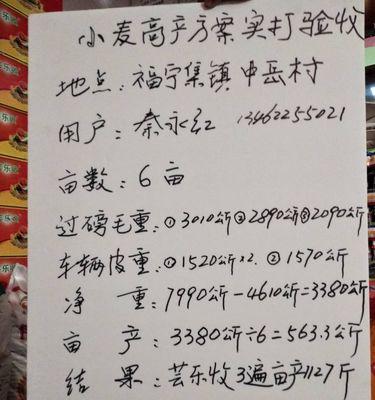 小麦高产方案实打验收
地点：福宁集镇中岳村
用户：秦永红 13462255021
亩数：6亩
过磅毛重：①3010公斤②2890公斤③2090公斤
车辆皮重：①1520公斤×2. ②1570公斤
净重：7990公斤－4610公斤=3380公斤
亩产：3380公斤÷6=563.3公斤
结果：芸乐收3遍亩产1127斤